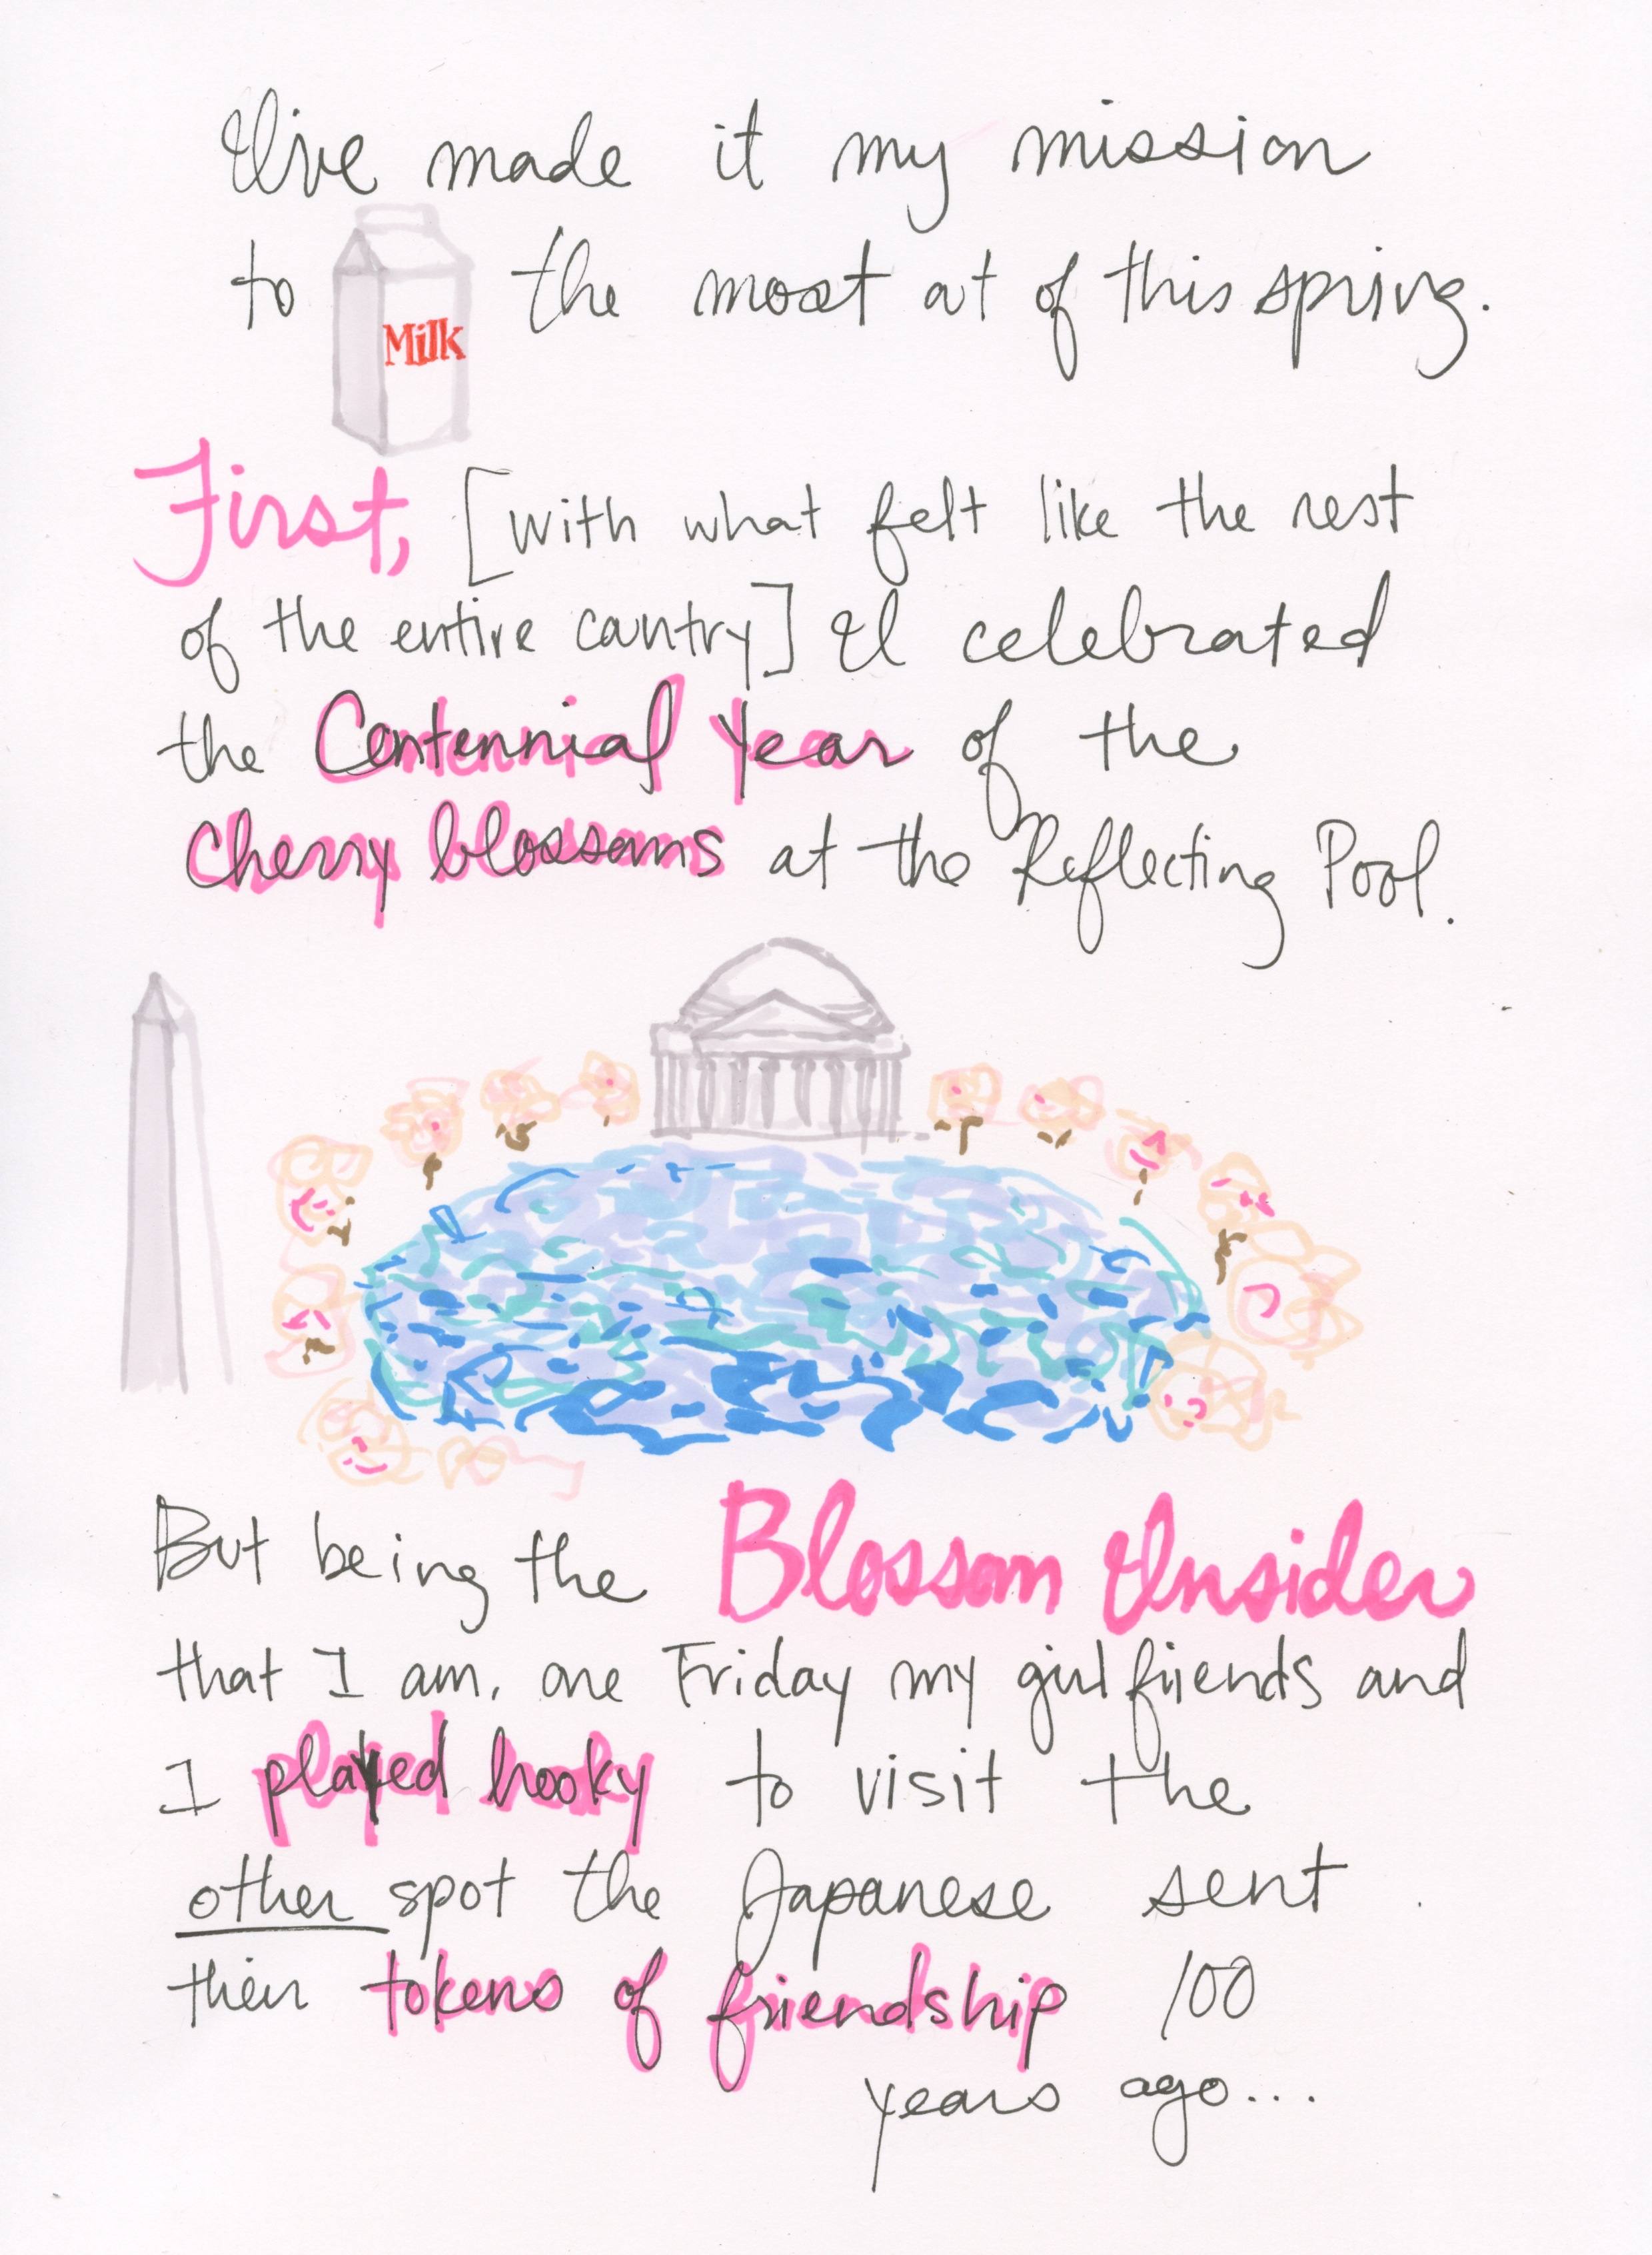 I've made it my mission
to Milk the most out of this spring.
First, [with what felt like the rest
of the entire country] I celebrated
the Centennial Year of the
Cherry blossoms at the Reflecting Pool.
But being the Blossom Insider
that I am, one Friday my girlfriends and
I played hooky to visit the
other spot the Japanese sent
their tokens of friendship 100
years ago...